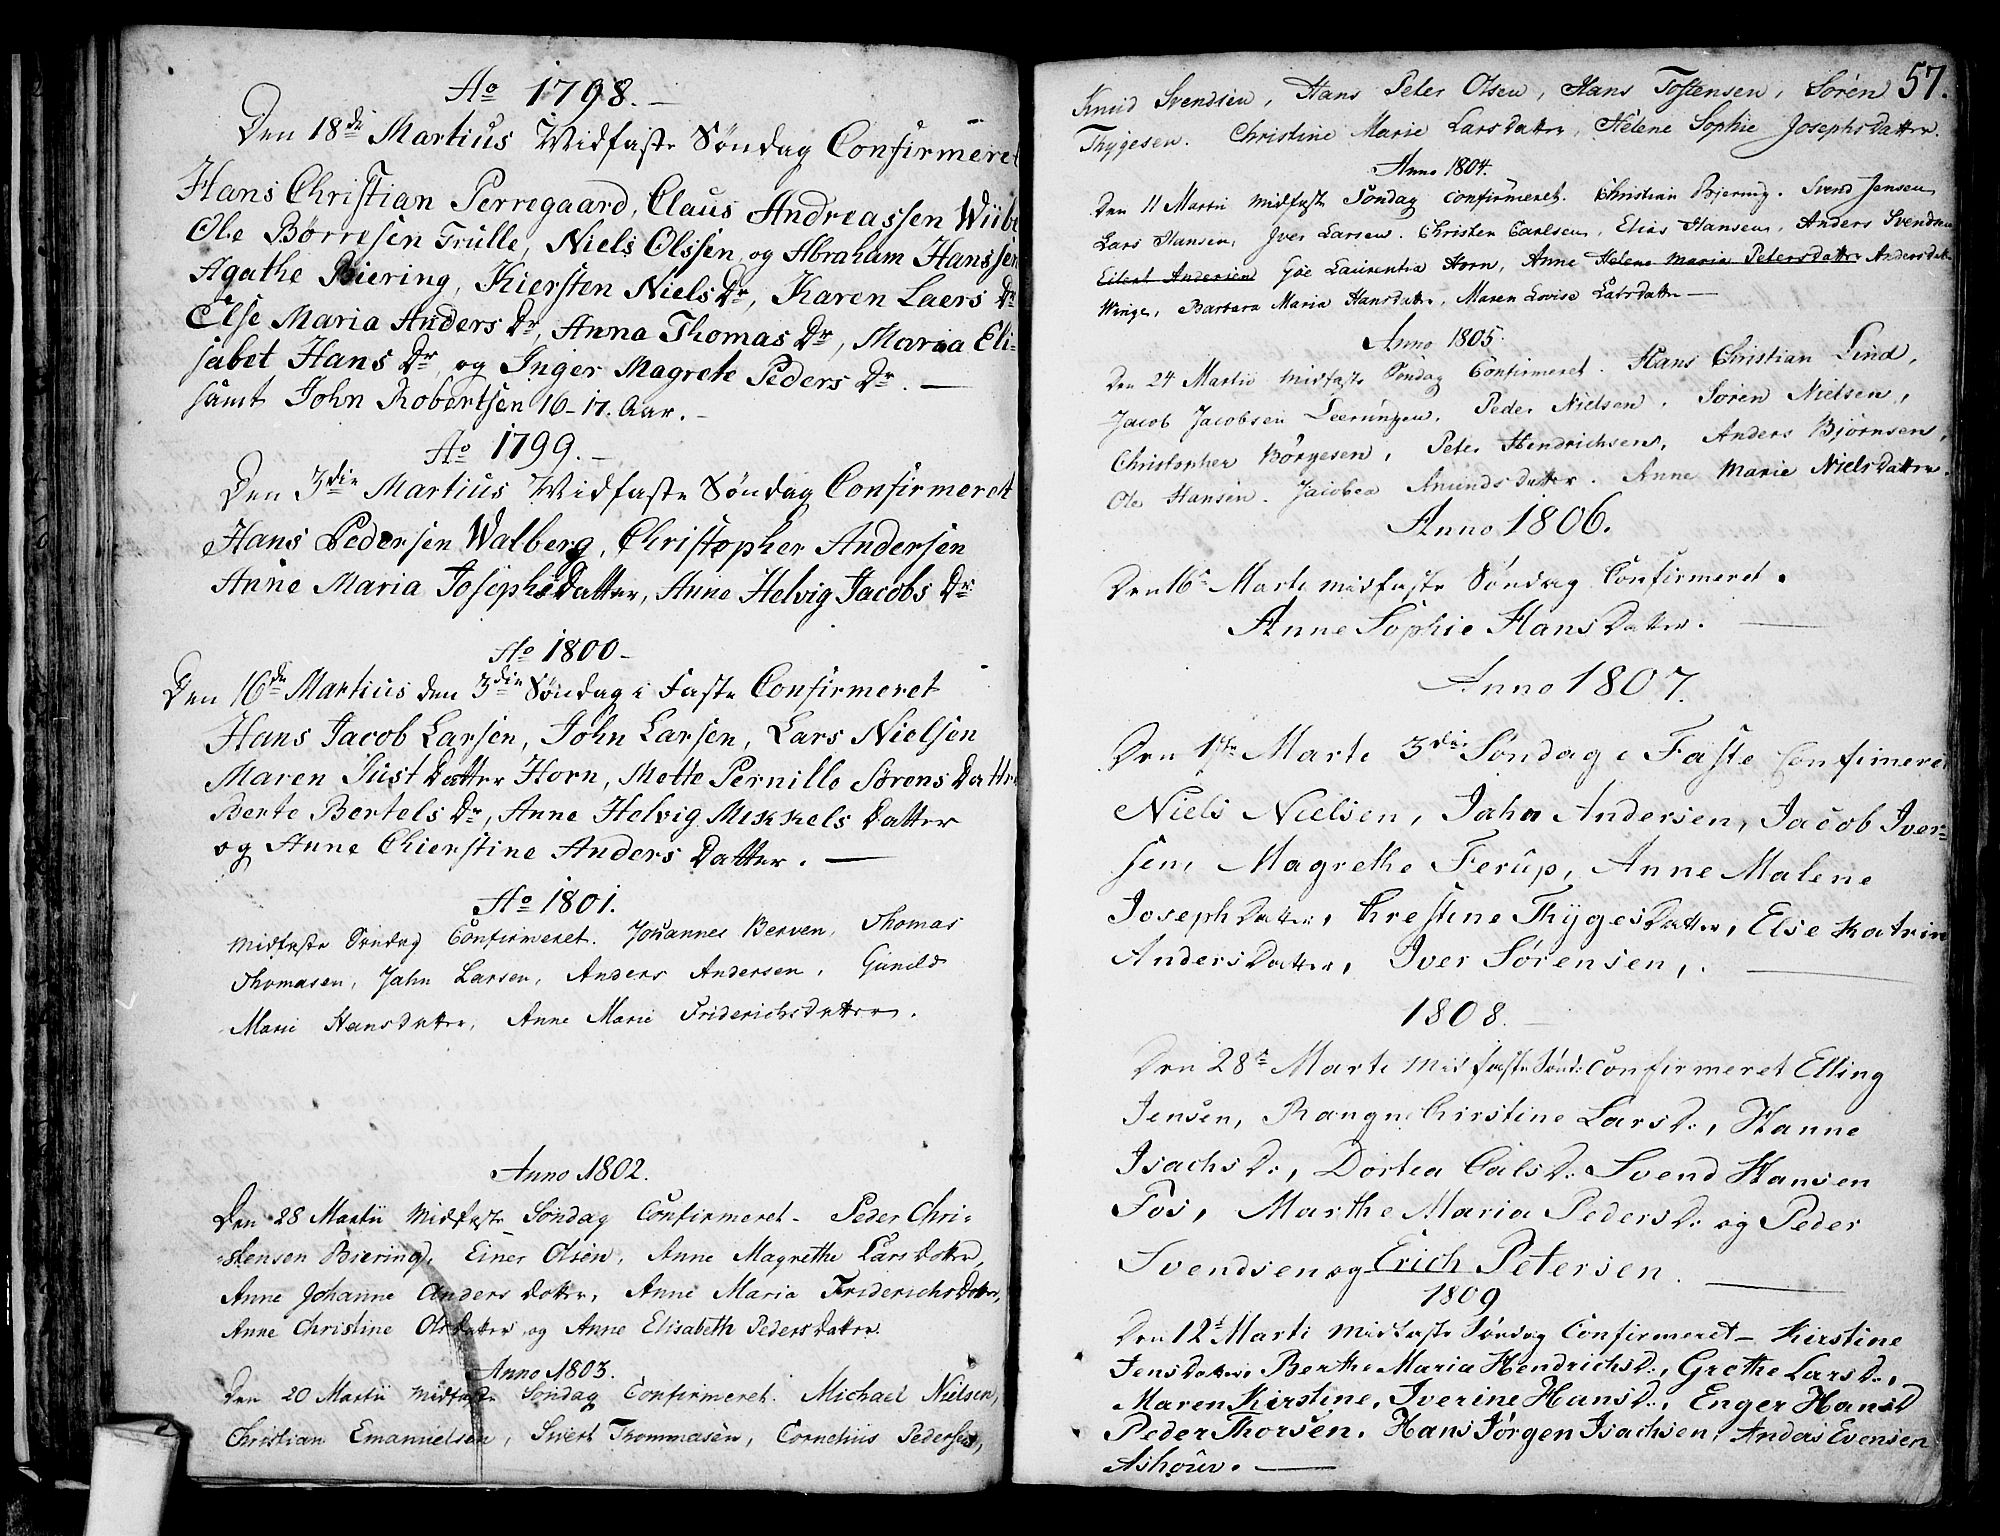 Ao 1798.
Den 18de Martius Midfaste Søndag Confirmeret
Hans Christian Perregaard, Claus Andreassen Wiibe
Ole Børresen Trulle, Niels Olssen, og Abraham Hanssen
Agathe Biering, Kiersten Niels Dr, Karen Laers Dr
Else Maria Anders Dr, Anna Thomas Dr, Maria Eli-
sabet Hans Dr, og Inger Magrete Peders Dr. —
samt John Robertsen 16-17. Aar. -
Ao 1799. -
Den 3die Martius Midfaste Søndag Confirmeret
Hans Pedersen Walberg, Christopher Andersen
Anne Maria Josephs Datter, Anne Helvig Jacobs Dr
Ao 1800 -
Den 16de Martius den 3die Søndag i Faste Confirmeret
Hans Jacob Larsen, John Larsen, Lars Nielsen
Maren Just Datter Horn, Mette Pernille Sørens Datter
Berte Bertels Dr, Anne Helvig Mikkels Datter
og Anne Chierstine Anders Datter. —
Ao 1801.
Midfaste Søndag Confirmeret. Johannes Berven, Thomas
Thomasen, Jahn Larsen, Anders Andersen, Gunild
Marie Hansdatter, Anne Marie Friderichsdatter.
Anno 1802.
Den 28 Martii Midfaste Søndag Confirmeret - Peder Chri-
stensen Biering, Einer Olsen, Anne Magrethe Larsdotter,
Anne Johanne Andersdotter, Anne Maria Friderichsdotter,
Anne Christine Olsdatter og Anne Elisabeth Pedersdatter.
Anno 1803.
Den 20 Martii Midfaste Søndag Confirmeret. Michael Nielsen,
Christian Emanuelsen, Sivert Thommasen, Cornelius Pedersen,
57.
Knud Svendsen, Hans Peter Olsen, Hans Tostensen, Søren
Thygesen. Christine Marie Larsdatter, Helene Sophie Josephsdatter.
Anno 1804.
Den 11 Martii Midfaste Søndag confirmeret. Christian Biering. Svend Jensen,
Lars Hansen, Iver Larsen. Christen Carlsen, Elias Hansen, Anders Svendsen
Eilert Andersen Gøe Laurentia Horn, Anne Helene Maria Petersdatter Andersdatter
Winge, Barbara Maria Hansdatter, Maren Lovise Larsdatter —
Anno 1805.
Den 24 Martii Midfaste Søndag Confirmeret. Hans Christian Lind,
Jacob Jacobsen Leerungen, Peder Nielsen, Søren Nielsen,
Christopher Børgesen, Peter Hendrichsen, Anders Bjørnsen,
Ole Hansen. Jacobea Amundsdatter. Anne Marie Nielsdatter.
Anno 1806.
Den 16e Marti midfaste Søndag Confirmeret.
Anne Sophie Hans Datter. —
Anno 1807.
Den 1ste Marti 3die Søndag i Faste Confirmeret
Niels Nielsen, Jahn Andersen, Jacob Iver-
sen, Magrethe Ferup, Anne Malene
Joseph Datter, Chrestine Thyges Datter, Else Katrine
Anders Datter, Iver Sørensen, . —
1808. —
Den 28e Marti Midfaste Sønd: Confirmeret Elling
Jensen, Rangne Chirstine Lars D:, Hanne
Isachs D:, Dortea Cals D: Svend Hansen
Fos, Marthe Maria Peders D: og Peder
Svendsen og Erich Petersen. —
1809
Den 12e Marti Midfaste Søndag Confirmeret - Kirstine
Jens Datter, Berthe Maria Hendrichs D:, Grethe Lars D:,
Maren Kirstine, Iverine Hans D:, Enger Hans D
Peder Thorsen, Hans Jørgen Isachsen, Anders Evensen
Ashour. —